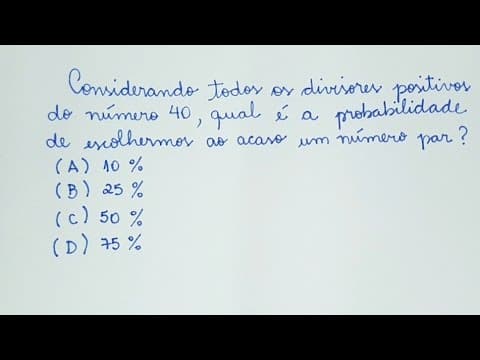 Considerando todos os divisores positivos
do número 40, qual é a probabilidade
de escolhermos ao acaso um número par?
(A) 10 %
(B) 25 %
(C) 50 %
(D) 75 %